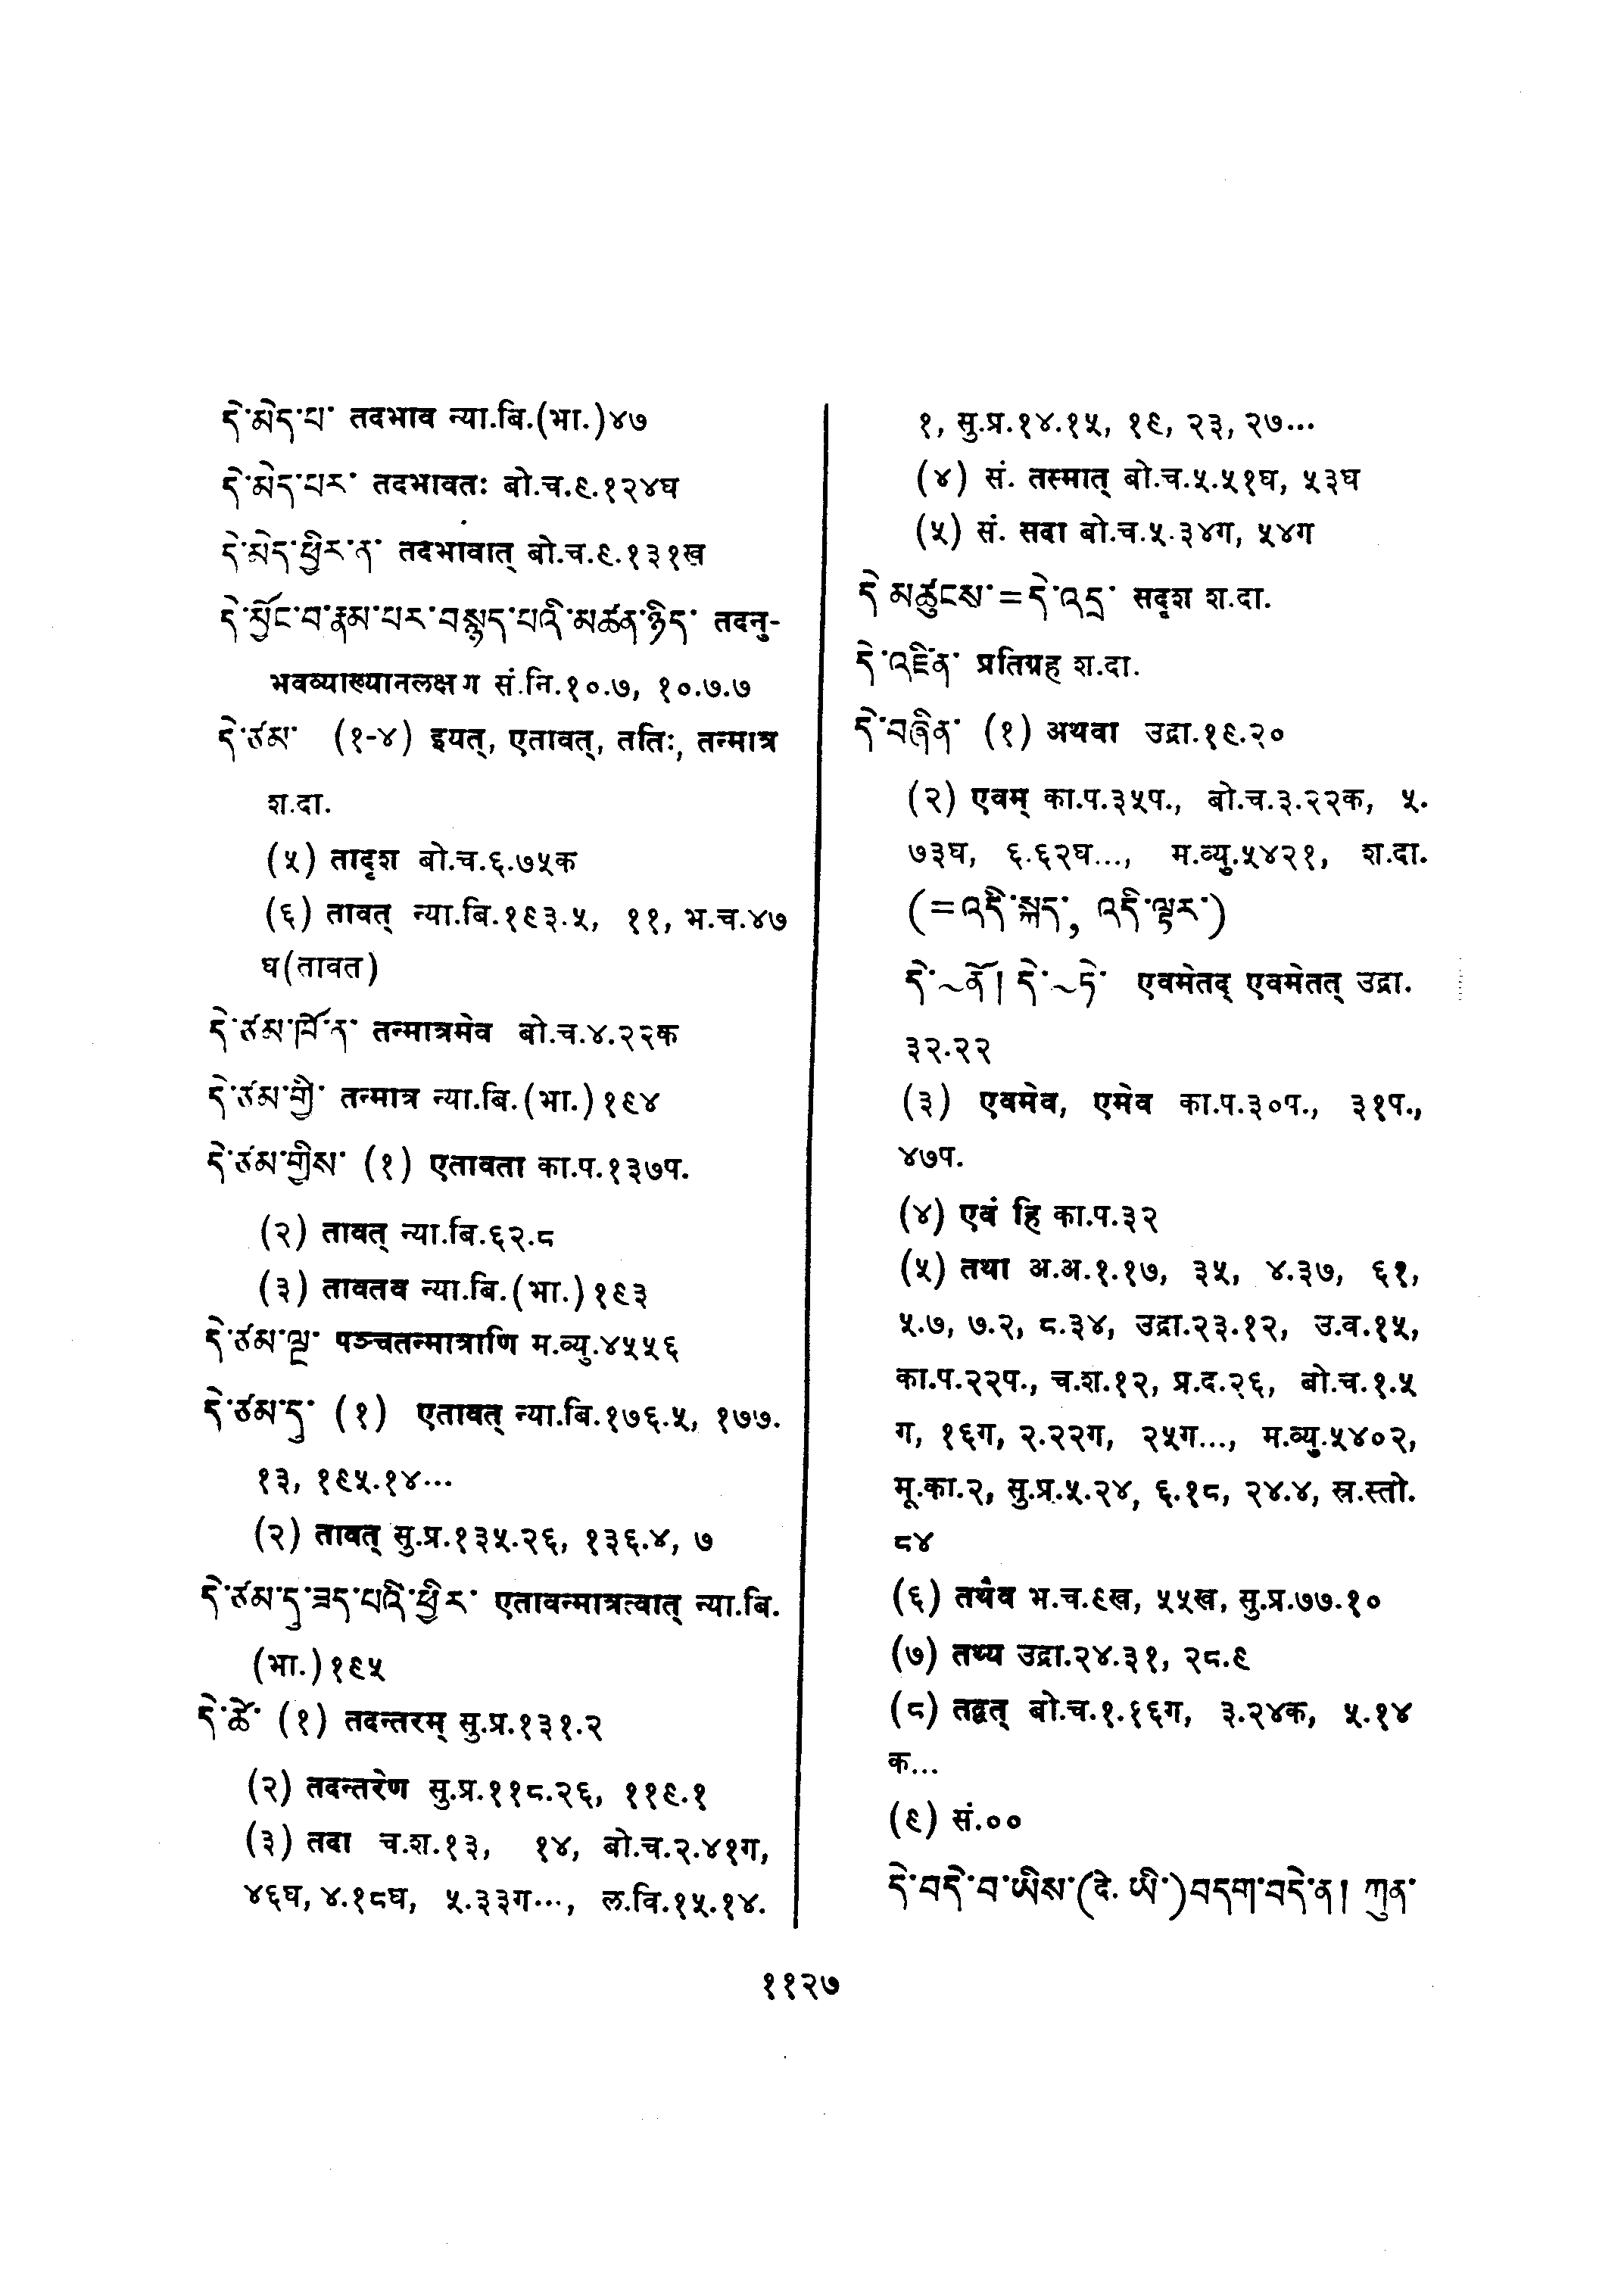 དེ་མེད་པ་ तदभाव न्या.बि.(भा.)४७
དེ་མེད་པར་ तदभावतः बो.च.९.१२४घ
དེ་མེད་ཕྱིར་ན་ तदभावात् बो.च.९.१३१ख
དེ་མྱོང་བ་རྣམ་པར་བསྙད་པའི་མཚན་ཉིད་ तदनु-
भवव्याख्यानलक्षग सं.नि.१०.७, १०.७.७
དེ་ཙམ་ (१-४) इयत्, एतावत्, ततिः, तन्मात्र
श.दा.
(५) तादृश बो.च.६.७५क
(६) तावत् न्या.बि.१९३.५, ११, भ.च.४७
घ(तावत)
དེ་ཙམ་ཁོ་ན་ तन्मात्रमेव बो.च.४.२२क
དེ་ཙམ་གྱི་ तन्मात्र न्या.बि.(भा.)१९४
དེ་ཙམ་གྱིས་ (१) एतावता का.प.१३७प.
(२) तावत् न्या.बि.६२.८
(३) तावतव न्या.बि.(भा.)१९३
དེ་ཙམ་ལྔ་ पञ्चतन्मात्राणि म.व्यु.४५५६
དེ་ཙམ་དུ་ (१) एतावत् न्या.बि.१७६.५, १७७.
१३, १९५.१४...
(२) तावत् सु.प्र.१३५.२६, १३६.४, ७
དེ་ཙམ་དུ་ཟད་པའི་ཕྱིར་ एतावन्मात्रत्वात् न्या.बि.
(भा.)१९५
དེ་ཚེ་ (१) तदन्तरम् सु.प्र.१३१.२
(२) तदन्तरेण सु.प्र.११८.२६, ११९.१
(३) तदा च.श.१३, १४, बो.च.२.४१ग,
४६घ, ४.१८घ, ५.३३ग..., ल.वि.१५.१४.
१, सु.प्र.१४.१५, १९, २३, २७...
(४) सं. तस्मात् बो.च.५.५१घ, ५३घ
(५) सं. सदा बो.च.५.३४ग, ५४ग
དེ མཚུངས་=དེ་འདྲ་ सदृश श.दा.
དེ་འཛིན་ प्रतिग्रह श.दा.
དེ་བཞིན་ (१) अथवा उद्रा.१९.२०
(२) एवम् का.प.३५प., बो.च.३.२२क, ५.
७३घ, ६.६२घ..., म.व्यु.५४२१, श.दा.
(=འདི་སྐད་, འདི་ལྟར་)
དེ་~ནོ། དེ་~ཏེ་ एवमेतद् एवमेतत् उद्रा.
३२.२२
(३) एवमेव, एमेव का.प.३०प., ३१प.,
४७प.
(४) एवं हि का.प.३२
(५) तथा अ.अ.१.१७, ३५, ४.३७, ६१,
५.७, ७.२, ८.३४, उद्रा.२३.१२, उ.व.१५,
का.प.२२प., च.श.१२, प्र.द.२६, बो.च.१.५
ग, १६ग, २.२२ग, २५ग..., म.व्यु.५४०२,
मू.का.२, सु.प्र.५.२४, ६.१८, २४.४, स्र.स्तो.
८४
(६) तथैव भ.च.९ख, ५५ख, सु.प्र.७७.१०
(७) तथ्य उद्रा.२४.३१, २८.९
(८) तद्वत् बो.च.१.१६ग, ३.२४क, ५.१४
क...
(९) सं.००
དེ་བདེ་བ་ཡིས་(दे. ཡི་)བདག་བདེ་ན། ཀུན་
११२७